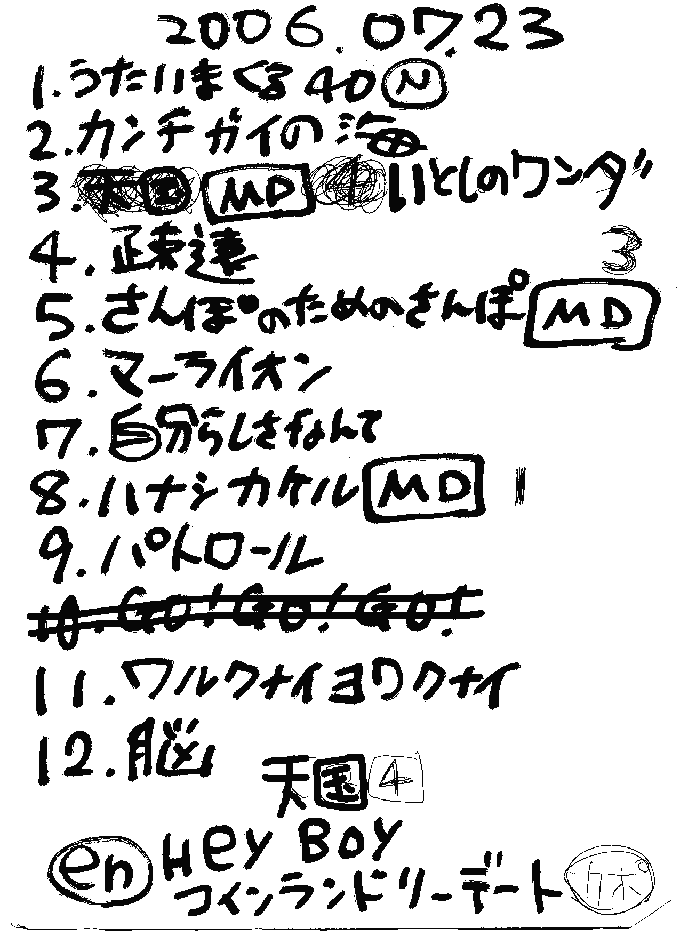 2006.07.23
1.うたいまくる40 N
2.カンチガイの海
3.天国 MD 4 いとしのワンダ"
4.疎遠 3
5.さんぽのためのさんぽ MD
6.マーライオン
7.自分らしさなんて
8.ハナシカケル MD 1
9.パトロール
10.GO!GO!GO!
11.ワルクナイヨワクナイ
12.脳
天国 4
en HEY BOY
コインランドリーデート カポ